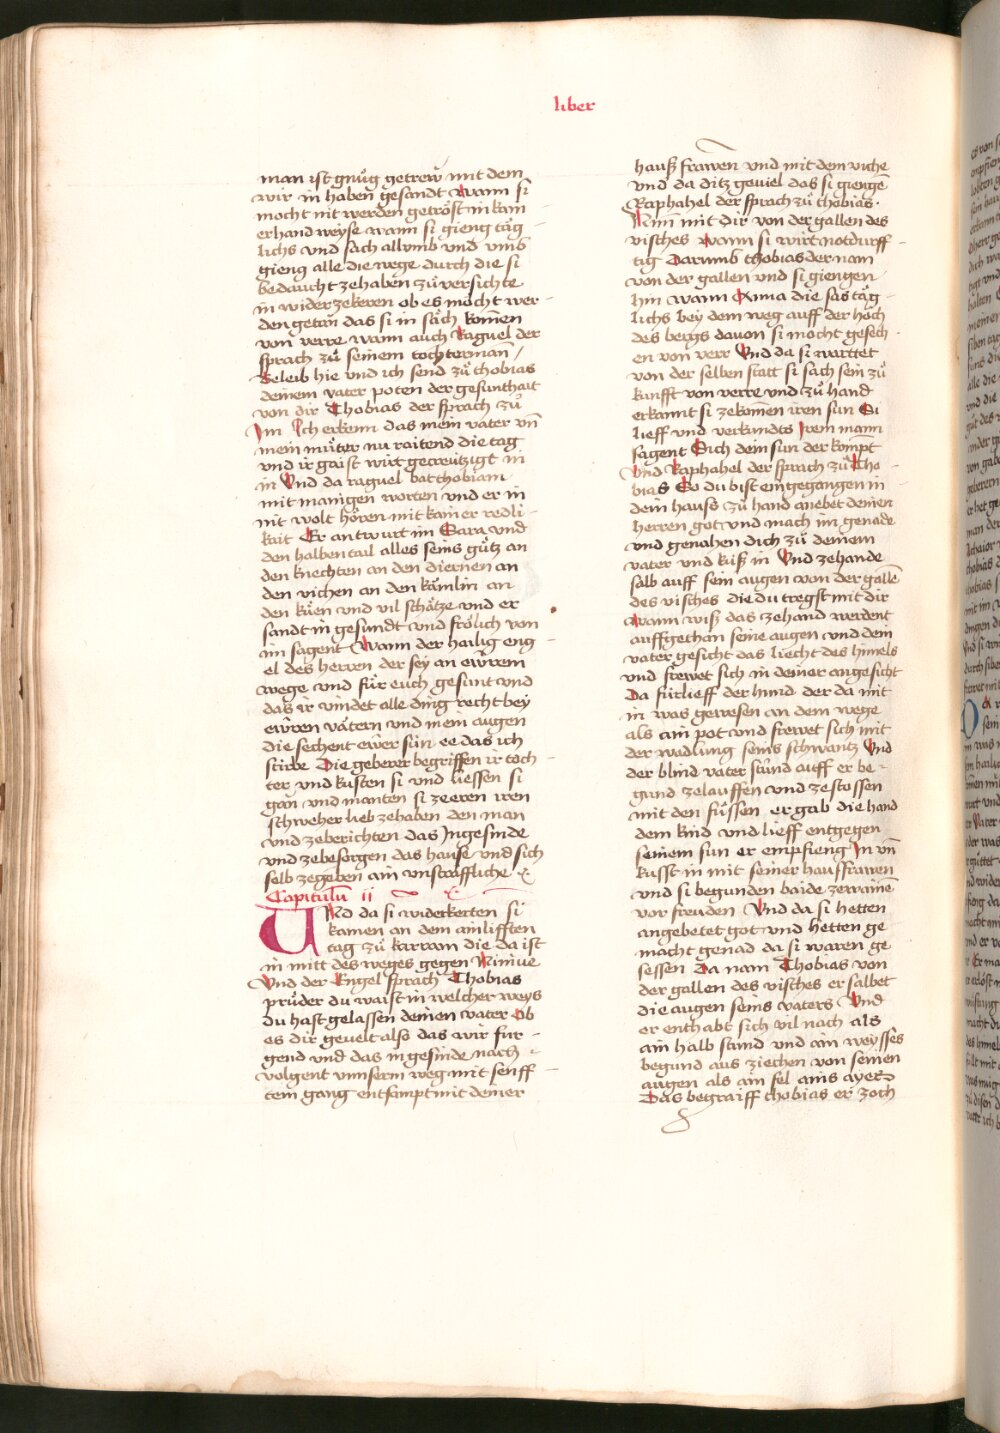 liber
man ist gnůg getrew mit dem
wir in haben gesandt wann si
mocht nit werden getröst in kain
erhand weyse wann si gieng täg
lichs vnd sach allvmb vnd vmb
gieng alle die wege durch die si
bedaucht zehaben zůversichte
in widerzekeren ob es möcht wer -
den getan das si in säch komen
von verre wann auch Raguel der
sprach zů seinem tochterman /
Beleib hie vnd ich send zů thobias
deinem vater poten der gesunthait
von dir Thobias der sprach zů
Im Ich erkenn das mein vater vn̄
mein můter nu raitend die tag
vnd ir gaist wirt gecreutzigt in
in Vnd da raguel bat thobiam
mit manigen worten vnd er in
nit wolt hören mit kainer redli -
kait Er antwurt im Sara vnd
den halbentail alles seins gůtz an
den knechten an den diernen an
den vichen an den kämlin an
den kůen vnd vil schätze vnd er
sandt in gesundt vnd frölich von
im sagent Wann der hailig eng -
el des herren der sey an ewrem
wege vnd für euch gesunt vnd
das ir vindet alle ding recht bey
ewren vätern vnd mein augen
die sechent ewer sün ee das ich
stirbe Die geberer begriffen ir toch -
ter vnd kusten si vnd liessen si
gan vnd manten si zeeren iren
schweher lieb zehaben den man
vnd zeberichten das Ingesinde
vnd zebesorgen das hause vnd sich
selb zegeben ain vnsträffliche
Capitulū ii
Vnd da si widerkerten si
kamen an dem ainlifften
tag zů karram die da ist
in mitt des weges gegen Niniue
Vnd der Engel sprach Thobias
průder du waist in welcher weys
du hast gelassen deinen vater Ob
es dir geuelt also das wir fur -
gend vnd das ingesinde nach -
volgent vnnserm weg mit senff -
tem gang entsampt mit deiner
hauß frawen vnd mit dem viche
vnd da ditz geuiel das si giengē
Raphahel der sprach zů thobias
Nim mit dir von der gallen des
visches wann si wirt notdurff -
tig Darumb thobias der nam
von der gallen vnd si giengen
hin wann Anna die sas täg -
lichs bey dem weg auff der höch
des bergs dauon si mocht gesech -
en von verr Vnd da si warttet
von der selben statt si sach sein zů
kunfft von verre vnd zů hand
erkannt si zekomen iren sun Si
lieff vnd verkundts Irem mann
sagent Sich dein sun der kompt
Vnd Raphahel der sprach zů Tho
bias So du bist eingegangen in -
dein hauss zů hand anebet deinen
herren got vnd mach im genade
vnd genahen dich zů deinem
vater vnd kuß in Vnd zehande
salb auff sein augen von der gallē
des visches die du tregst mit dir
Wann wiß das zehand werdent
auffgethan seine augen vnd dein
vater gesicht das liecht des himels
vnd frewet sich in deiner angesicht
Da fürlieff der hund der da mit
in was gewesen an dem wege
als ain pot vnd frewet sich mit
der wadlung seins schwantz Vnd
der blind vater stůnd auff er be -
gund zelauffen vnd zestossen
mit den füssen er gab die hand
dem kind vnd lieff entgegen
seinem sun er empfieng In vn̄
kusst in mit seiner haussfrawen
vnd si begunden baide zewainē
vor freuden Vnd da si hetten
angebetet got vnd hetten ge
macht genad da si waren ge
sessen Da nam Thobias von
der gallen des visches er salbet
die augen seins vaters Vnd
er enthabt sich vil nach als
ain halb stund vnd ain weysses
begund aus ziechen von seinen
augen als ain fel ains ayers
Das begraiff thobias er zoch